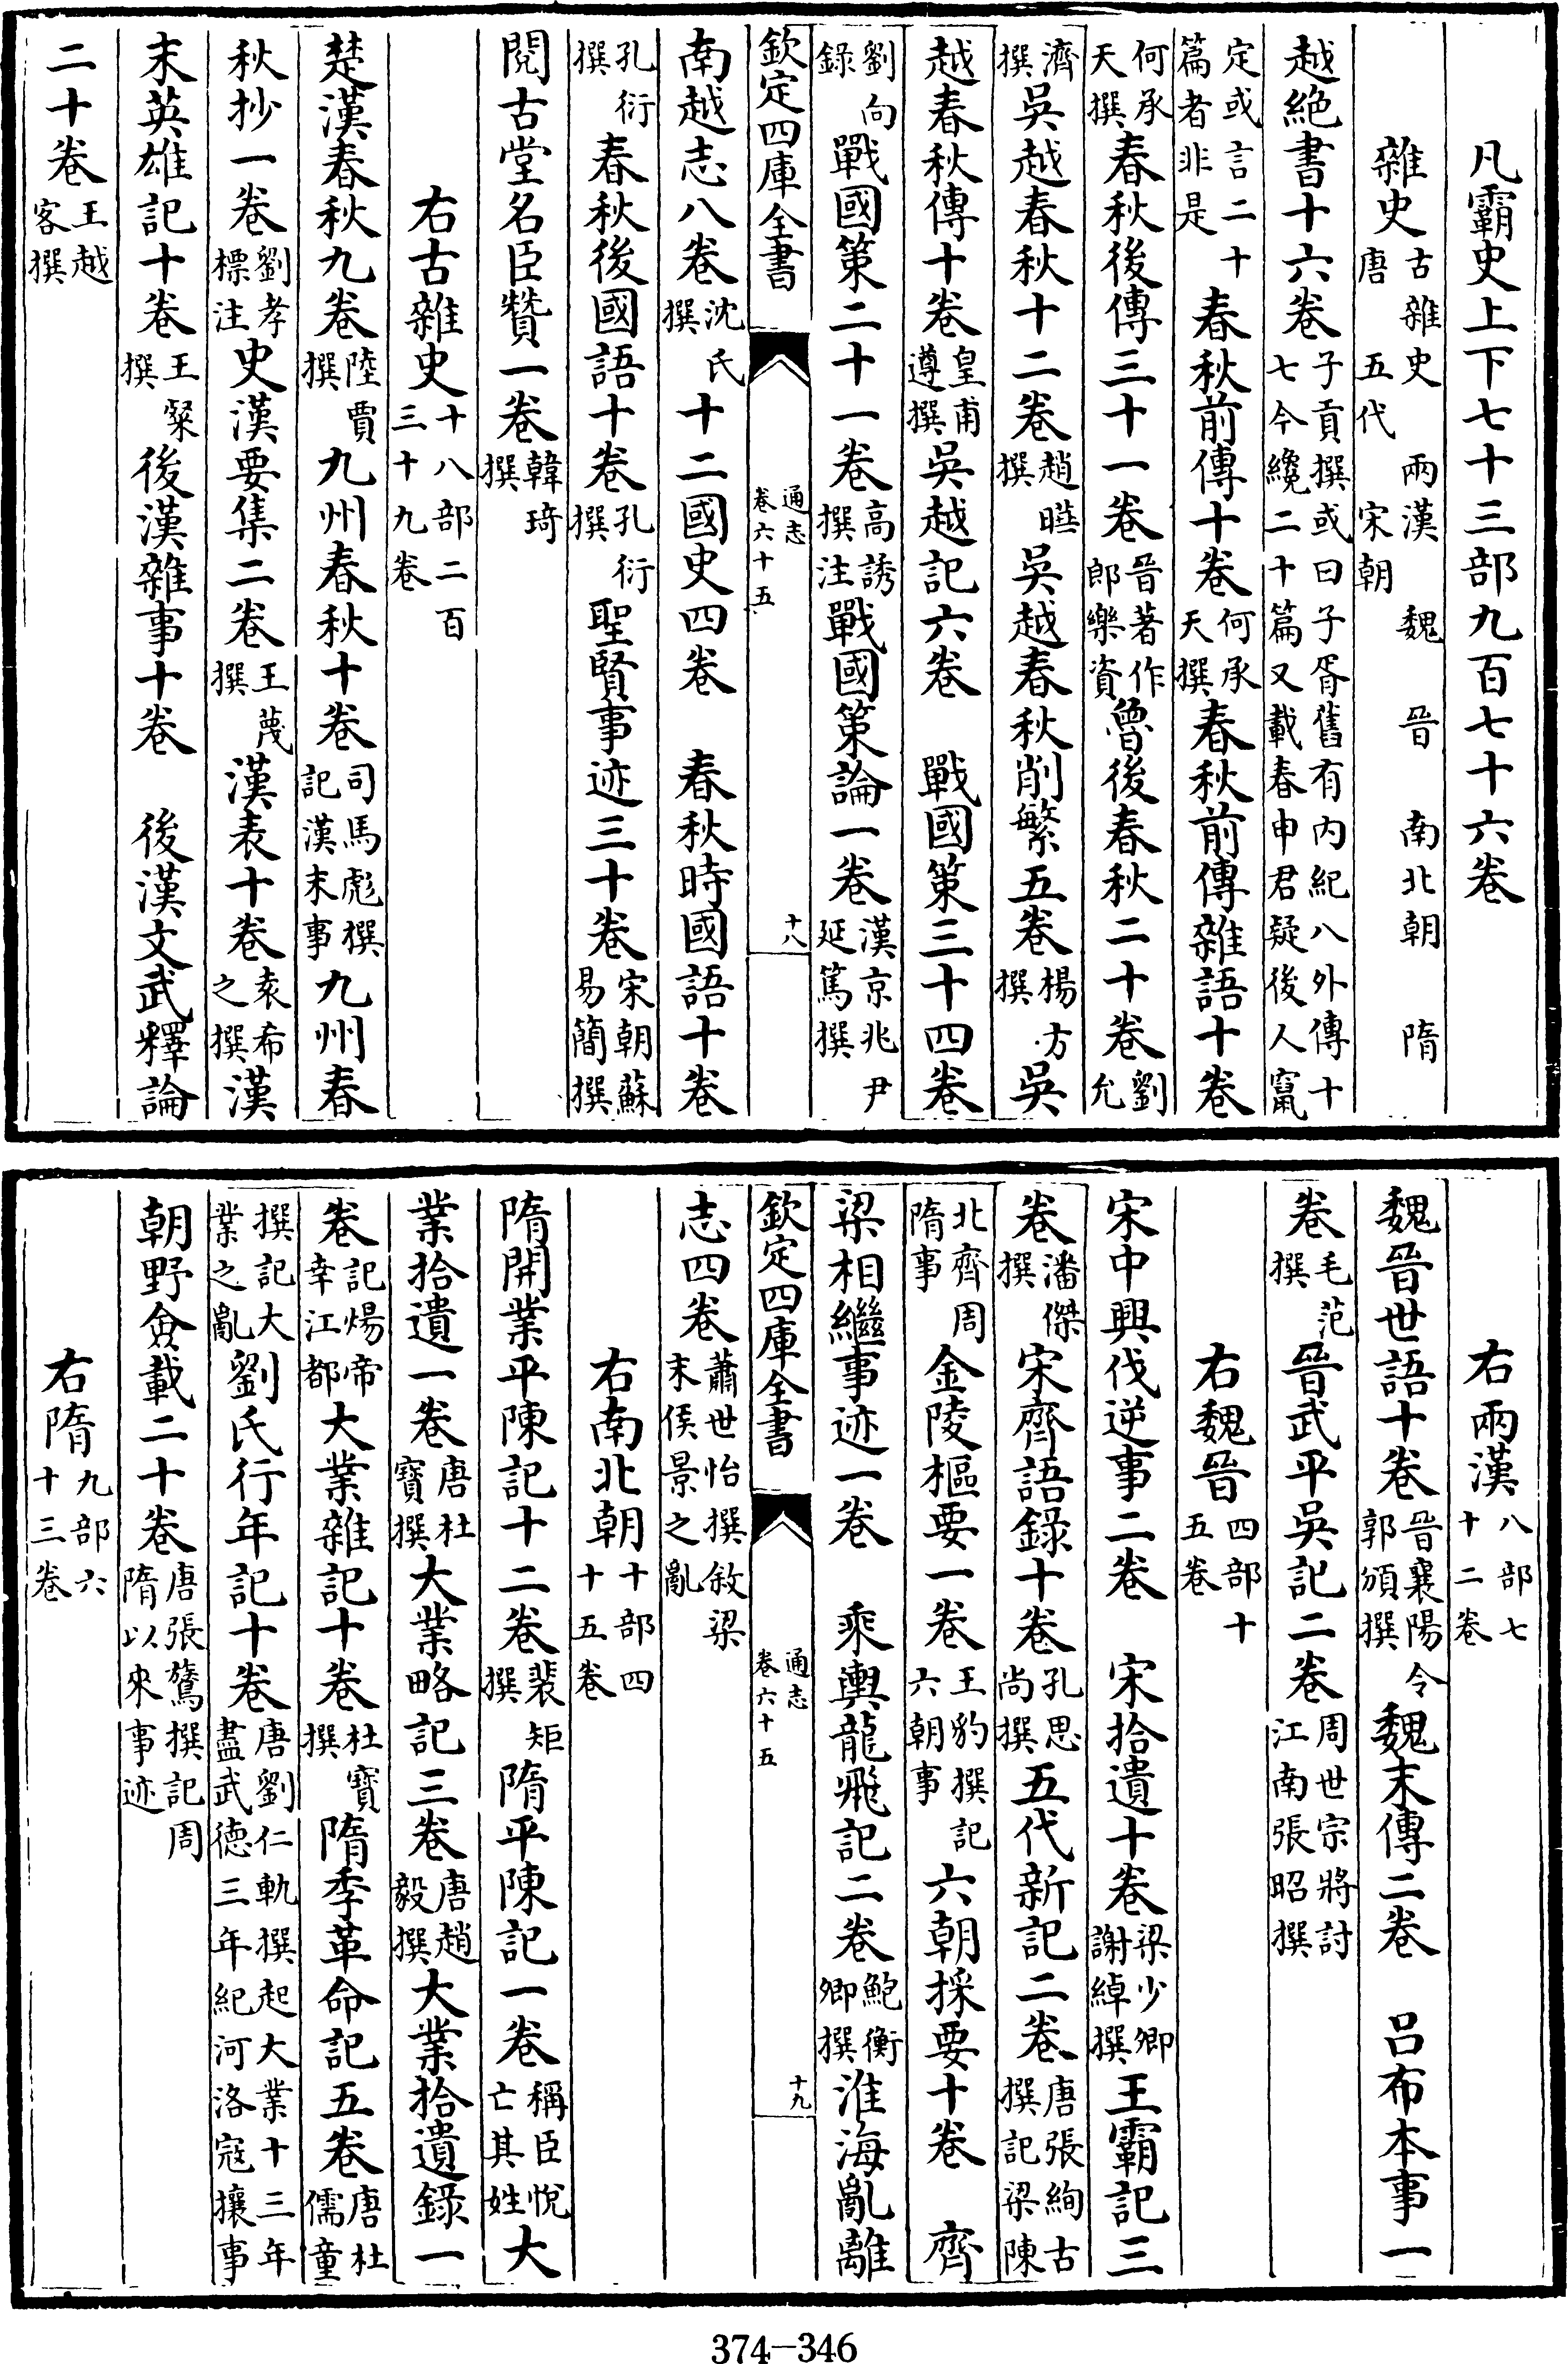 凡霸史上下七十三部九百七十六卷
雜史古雜史 兩漢 魏 晉 南北朝 隋唐 五代 宋朝
越絶書十六卷子貢撰或曰子胥舊有内紀八外傳十七今纔二十篇又載春申君疑後人竄
定或言二十篇者非是春秋前傳十卷何承天撰春秋前傳雜語十卷
何承天撰春秋後傳三十一卷晉著作郎樂資魯後春秋二十卷劉允
濟撰吳越春秋十二卷趙曄撰吳越春秋削繁五卷楊方撰吳
越春秋傳十卷皇甫遵撰吳越記六卷 戰國策三十四卷
劉向錄戰國策二十一卷高誘撰注戰國策論一卷漢京兆尹延篤撰
欽定四庫全書 通志卷六十五 十八
南越志八卷沈氏撰十二國史四卷 春秋時國語十卷
孔衍撰春秋後國語十卷孔衍撰聖賢事迹三十卷宋朝蘇易簡撰
閱古堂名臣贊一卷韓琦撰
右古雜史十八部二百三十九卷
楚漢春秋九卷陸賈撰九州春秋十卷司馬彪撰記漢末事九州春
秋抄一卷劉孝標注史漢要集二卷王蔑撰漢表十卷袁希之撰漢
末英雄記十卷王粲撰後漢雜事十卷 後漢文武釋論
二十卷王越客撰
右兩漢八部七十二卷
魏晉世語十卷晉襄陽令郭頒撰魏末傳二卷 呂布本事一
卷毛范撰晉武平吳記二卷周世宗將討江南張昭撰
右魏晉四部十五卷
宋中興伐逆事二卷 宋拾遺十卷梁少卿謝綽撰王霸記三
卷潘傑撰宋齊語錄十卷孔思尚撰五代新記二卷唐張絢古撰記梁陳
北齊周隋事金陵樞要一卷王豹撰記六朝事六朝採要十卷 齊
梁相繼事迹一卷 乘輿龍飛記二卷鮑衡卿撰淮海亂離
欽定四庫全書 通志卷六十五 十九
志四卷蕭世怡撰敘梁末侯景之亂
右南北朝十部四十五卷
隋開業平陳記十二卷裴矩撰隋平陳記一卷稱臣悅亡其姓大
業拾遺一卷唐杜寶撰大業略記三卷唐趙毅撰大業拾遺錄一
卷記煬帝幸江都大業雜記十卷杜寶撰隋季革命記五卷唐杜儒童
撰記大業之亂劉氏行年記十卷唐劉仁軌撰起大業十三年盡武德三年紀河洛寇攘事
朝野僉載二十卷唐張鷟撰記周隋以來事迹
右隋九部六十三卷
374-346